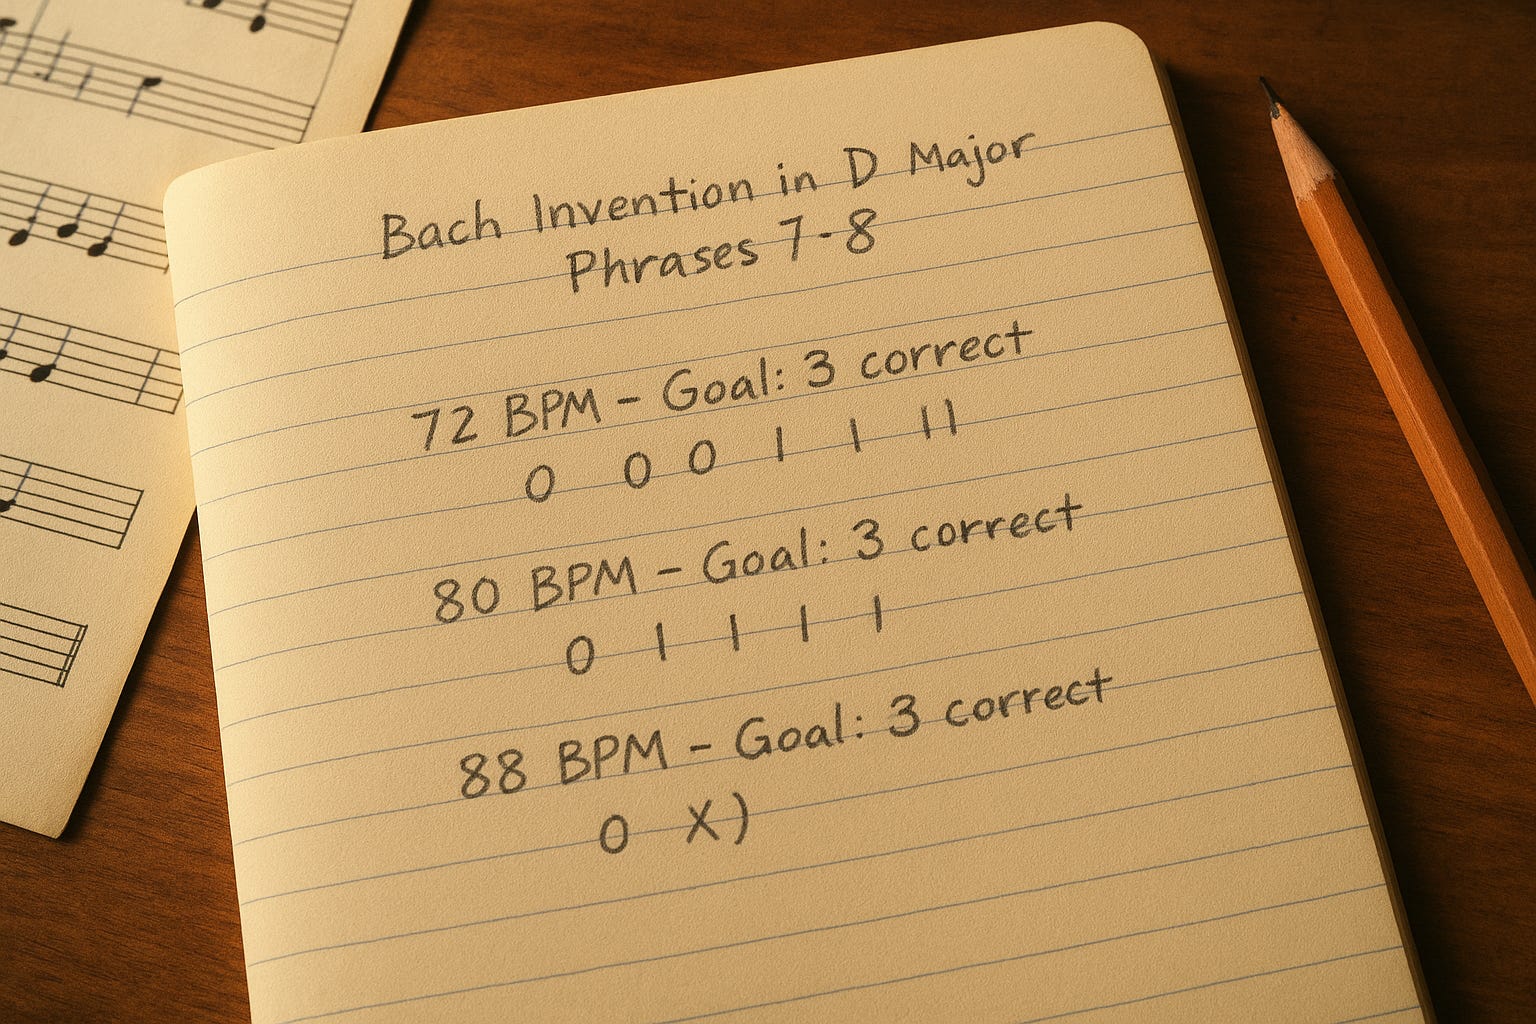 Bach Invention in D Major
Phrases 7-8
72 BPM – Goal: 3 correct
0 0 0 1 1 11
80 BPM – Goal: 3 correct
0 1 1 1 1
88 BPM – Goal: 3 correct
0 X)